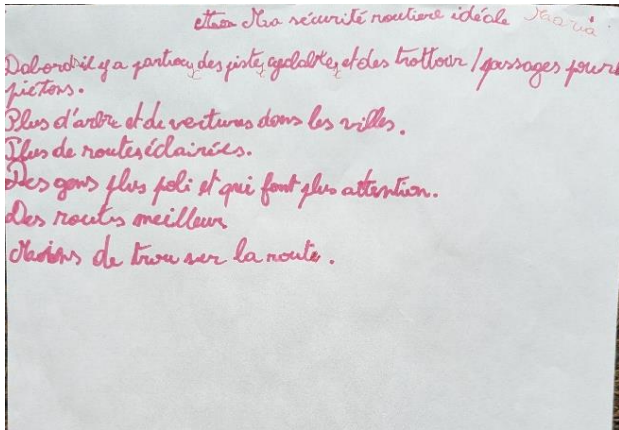 Ma sécurité routiere idéale Maria
Dabord il y a partiout des pistes cyclables et des trottoir / passages pour
pietons.
Plus d'arbre et de vertures dans les villes.
Plus de routes éclairées.
Des gens plus poli et qui font plus attention.
Des routes meilleur
Moins de trou sur la route.